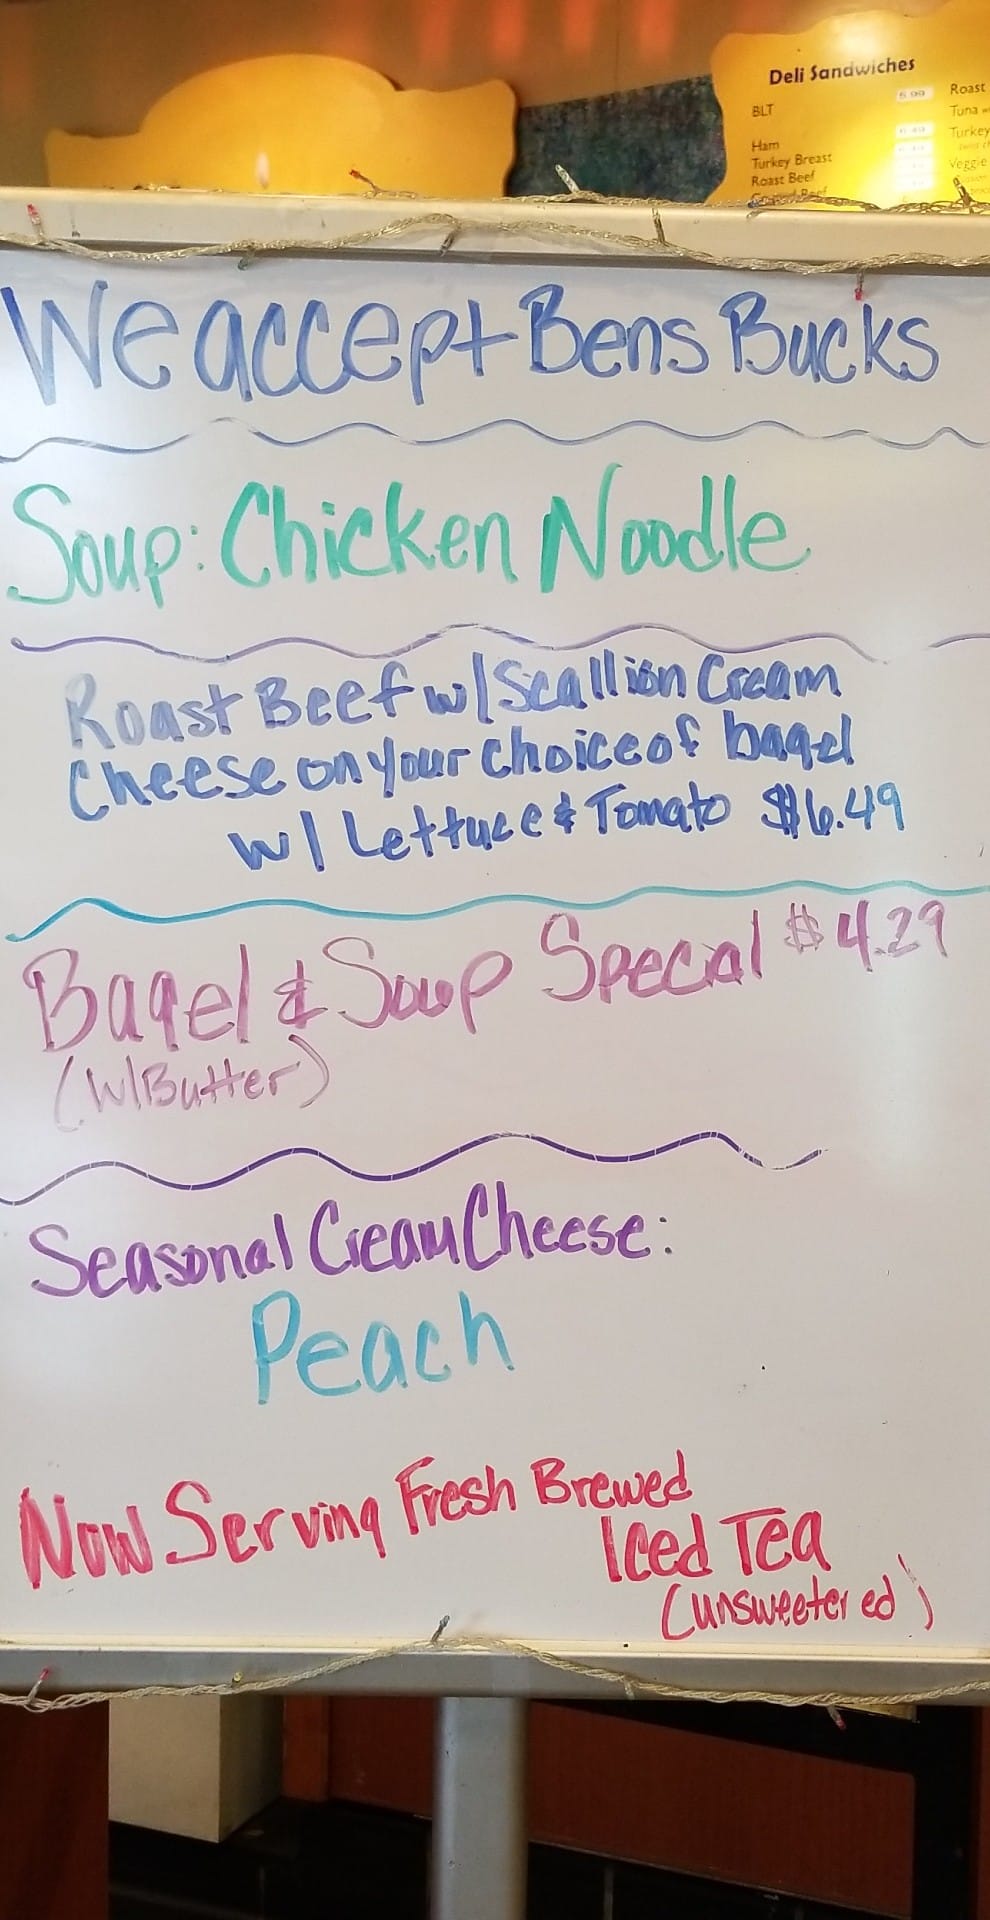 Deli Sandwiches
BLT
5.99
Ham
Turkey Breast
Roast Beef
Roast
Tuna
Turkey
Veggie
We accept Bens Bucks
Soup: Chicken Noodle
Roast Beef w/ Scallion Cream
Cheese on your choice of bagel
w/ Lettuce & Tomato $6.49
Bagel & Soup Special $4.29
(W/Butter)
Seasonal Cream Cheese:
Peach
Now Serving Fresh Brewed
Iced Tea
(unsweetened)